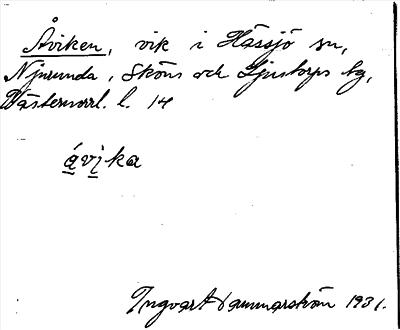 Åviken, vik i Hässjö sn,
Njurunda, Sköns och Ljustorps tg,
Västernorrl. l. 14
ávika
Ingvart Hammarström 1931.